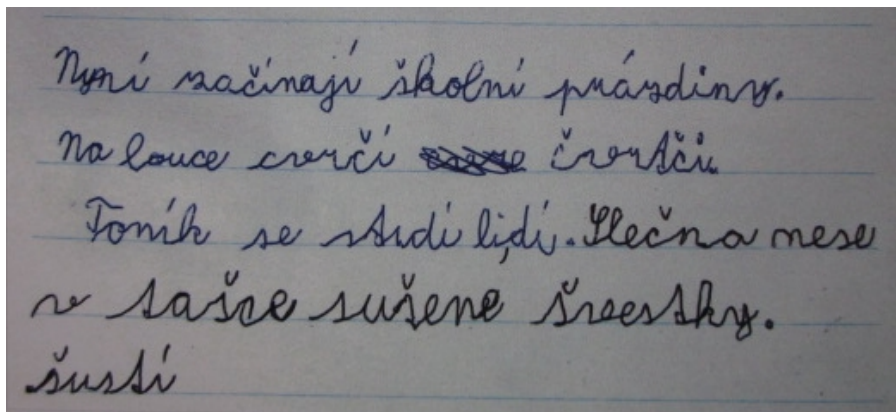 Nyní začínají školní prázdiny.
Na louce cvrčí čvrtčci
Toník se stidí lidí. Slečna nese
v tašce sušené švestky.
šustí